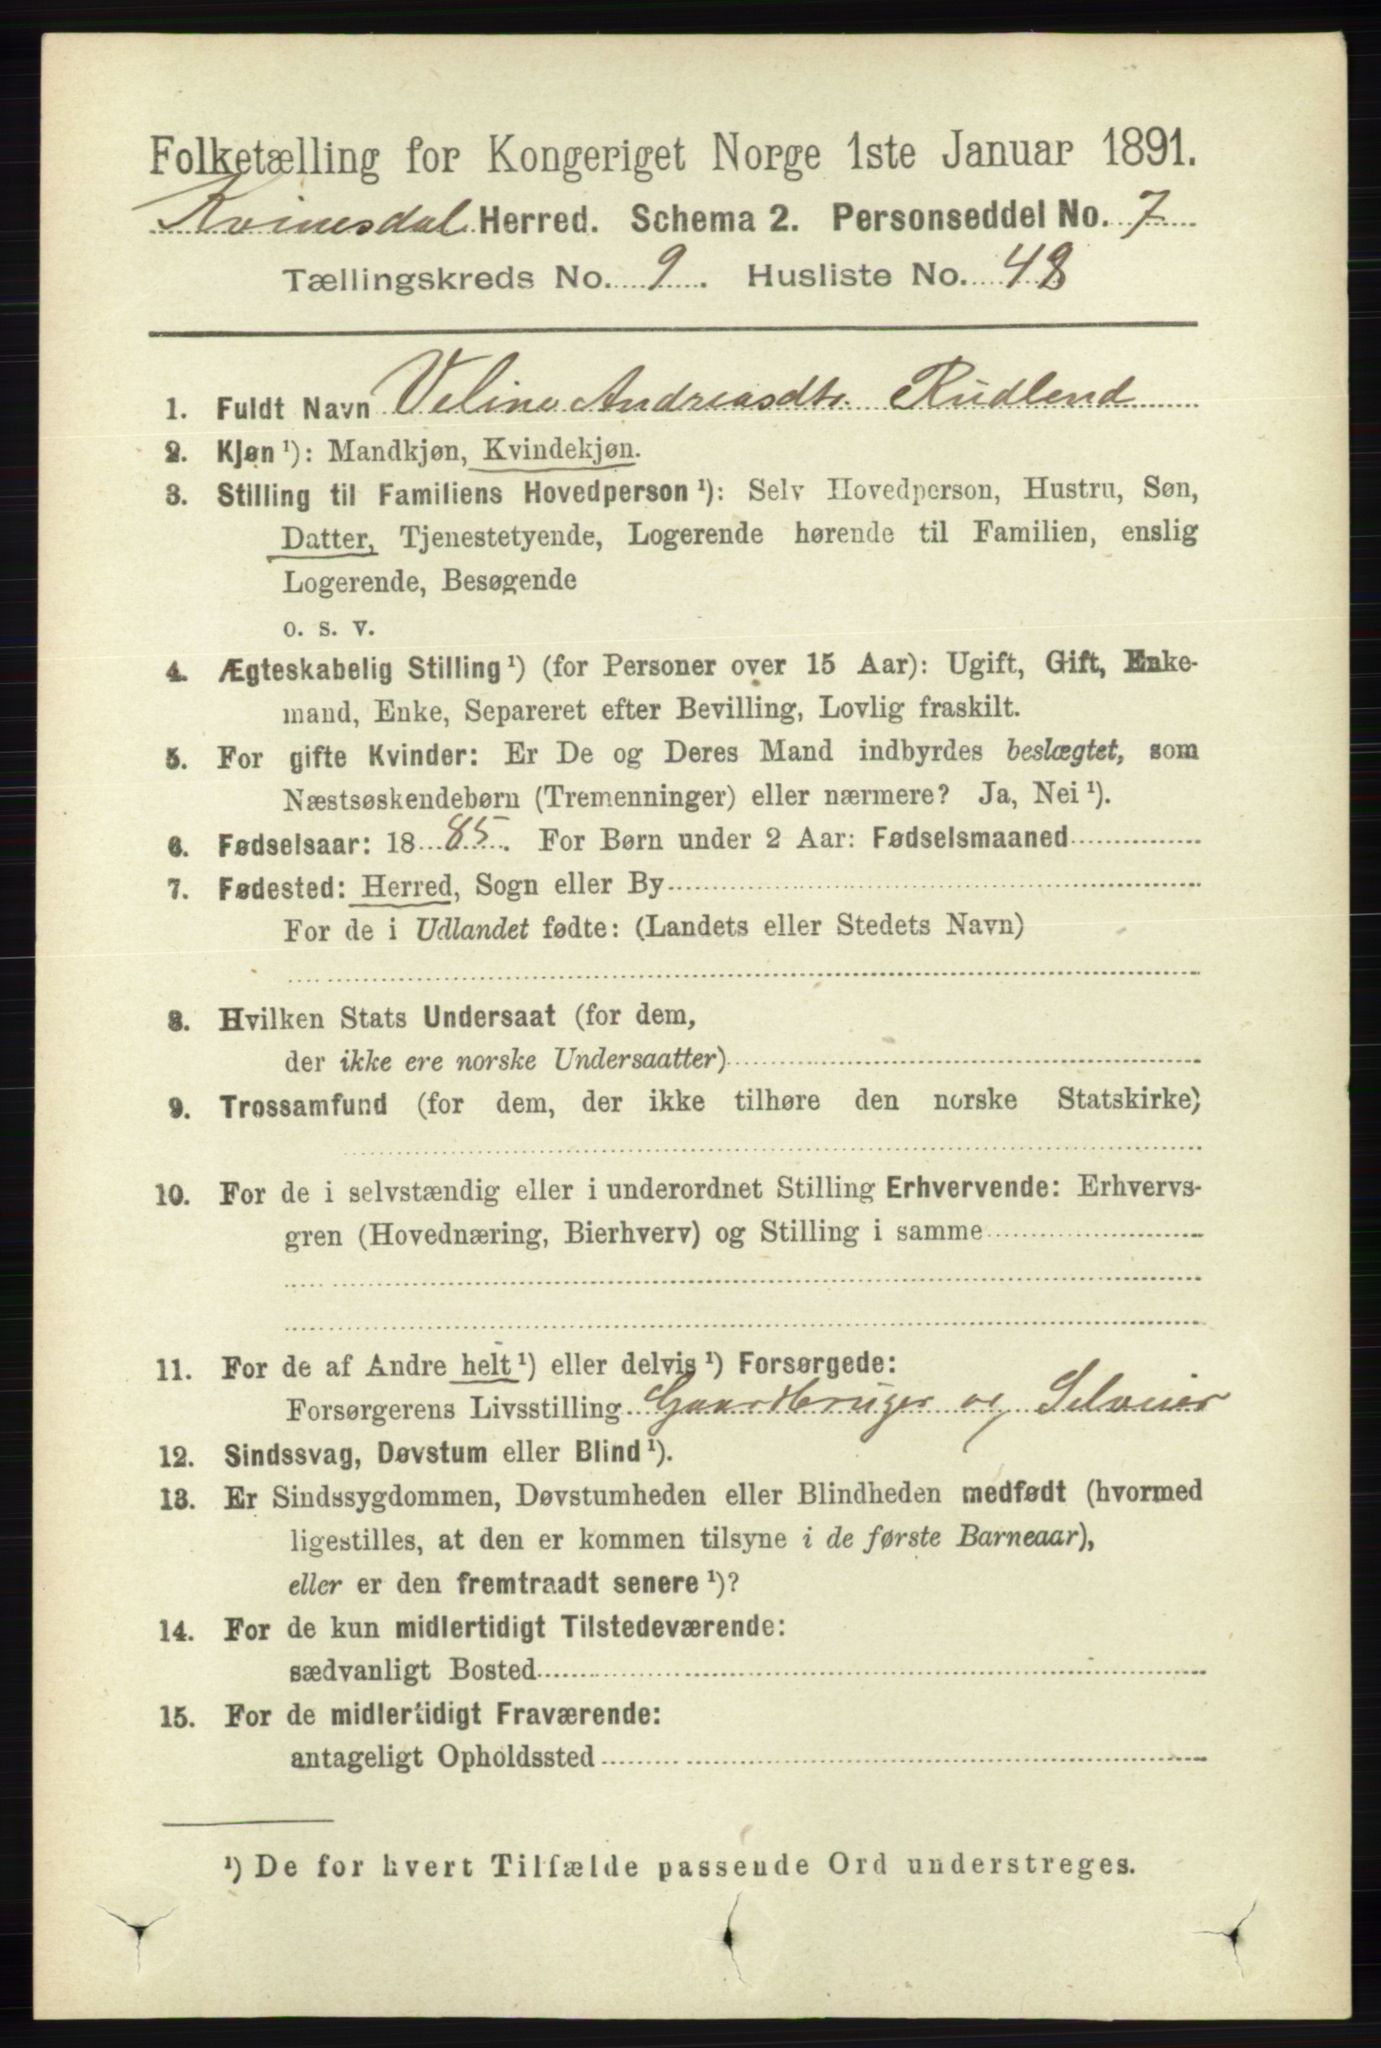 Folketælling for Kongeriget Norge 1ste Januar 1891.
Kvinesdal Herred. Schema 2. Personseddel No. 7
Tællingskreds No. 9. Husliste No. 48
1. Fuldt Navn Veline Andreasdtr. Rudlend
2. Kjøn ¹): Mandkjøn, Kvindekjøn.
3. Stilling til Familiens Hovedperson ¹): Selv Hovedperson, Hustru, Søn,
Datter, Tjenestetyende, Logerende hørende til Familien, enslig
Logerende, Besøgende
o. s. v.
4. Ægteskabelig Stilling ¹) (for Personer over 15 Aar): Ugift, Gift, Enke-
mand, Enke, Separeret efter Bevilling, Lovlig fraskilt.
5. For gifte Kvinder: Er De og Deres Mand indbyrdes beslægtet, som
Næstsøskendebørn (Tremenninger) eller nærmere? Ja, Nei ¹).
6. Fødselsaar: 1885. For Børn under 2 Aar: Fødselsmaaned
7. Fødested: Herred, Sogn eller By
For de i Udlandet fødte: (Landets eller Stedets Navn)
8. Hvilken Stats Undersaat (for dem,
der ikke ere norske Undersaatter)
9. Trossamfund (for dem, der ikke tilhøre den norske Statskirke)
10. For de i selvstændig eller i underordnet Stilling Erhvervende: Erhvervs-
gren (Hovednæring, Bierhverv) og Stilling i samme
11. For de af Andre helt ¹) eller delvis ¹) Forsørgede:
Forsørgerens Livsstilling Gaardbruger og Selveier
12. Sindssvag, Døvstum eller Blind ¹).
13. Er Sindssygdommen, Døvstumheden eller Blindheden medfødt (hvormed
ligestilles, at den er kommen tilsyne i de første Barneaar),
eller er den fremtraadt senere ¹)?
14. For de kun midlertidigt Tilstedeværende:
sædvanligt Bosted
15. For de midlertidigt Fraværende:
antageligt Opholdssted
¹) De for hvert Tilfælde passende Ord understreges.